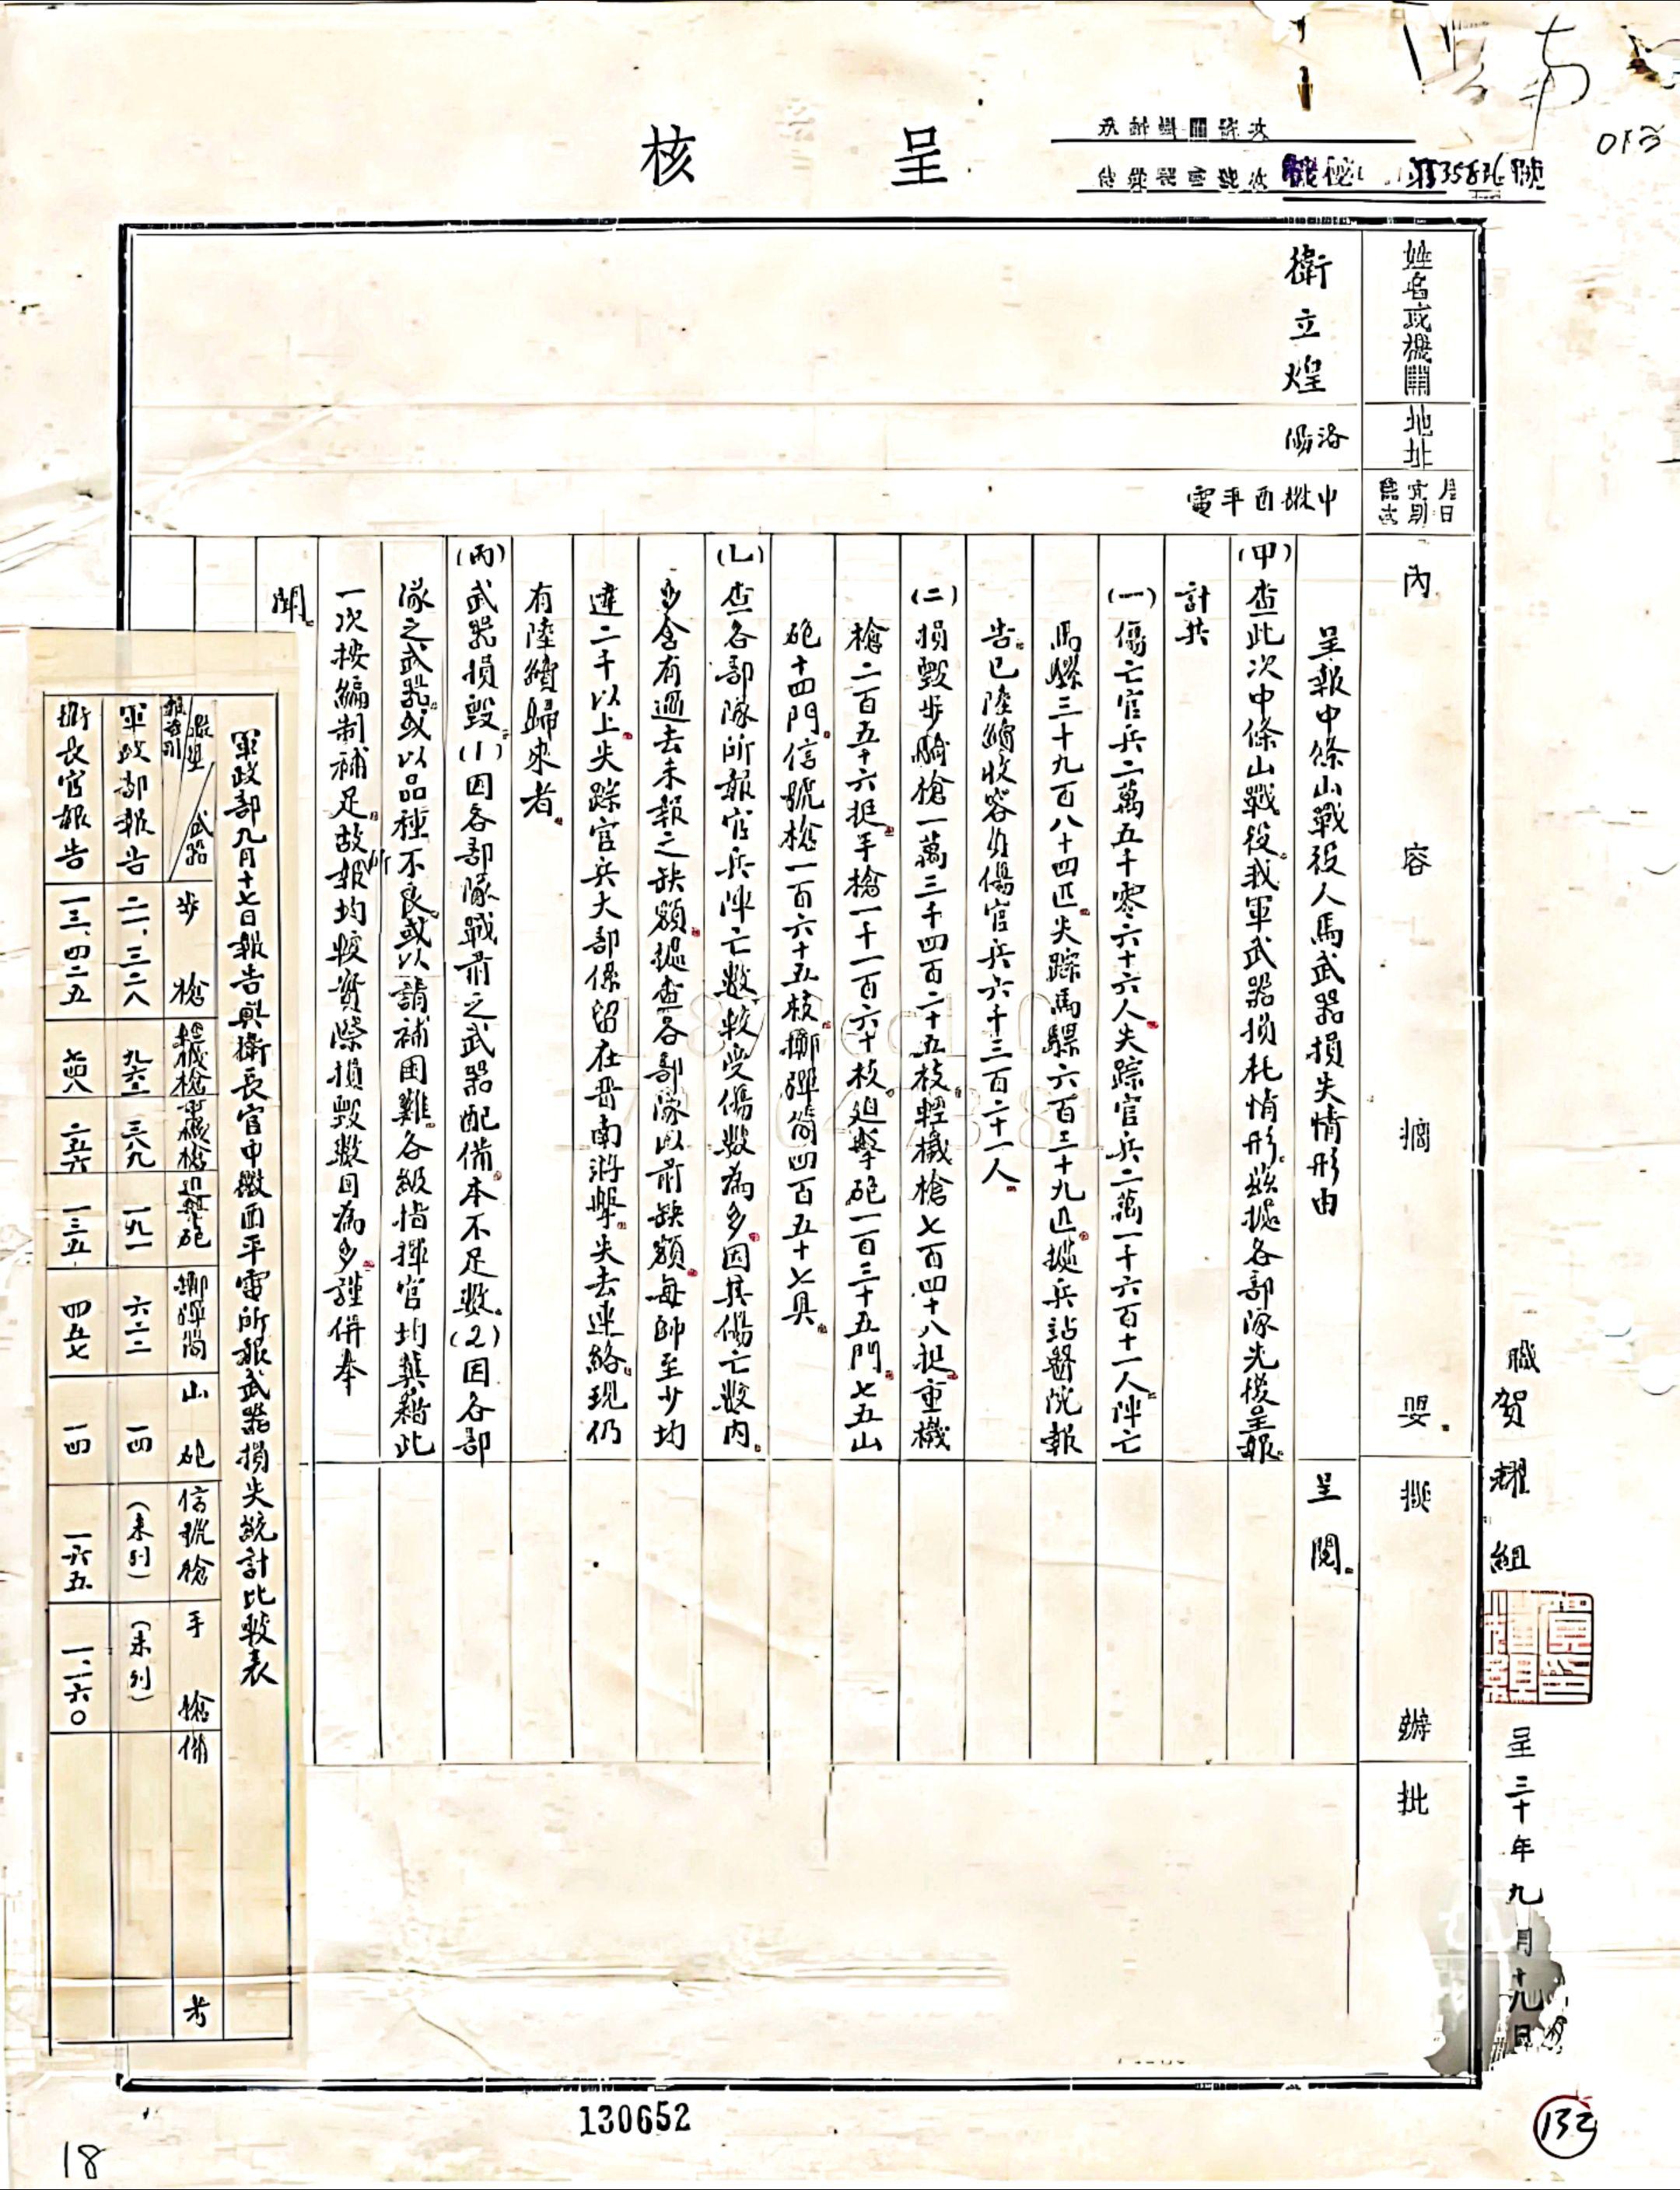 呈核
機秘 第35836號
姓名或機關
地址
內容摘要
擬辦
批
衛立煌
洛陽
申微酉平電
呈報中條山戰役人馬武器損失情形由
呈閱。
(甲)查此次中條山戰役我軍武器損耗情形茲據各部隊先後呈報
計共
(一)傷亡官兵二萬五千零六十六人失踪官兵二萬一千六百十一人陣亡
馬騾三千九百八十四匹失踪馬騾六百三十九匹據兵站醫院報
告已陸續收容負傷官兵六千三百二十一人
(二)損毀步騎槍一萬三千四百二十五枝輕機槍七百四十八挺重機
槍二百五十六挺手槍一千一百六十枝迫擊砲一百三十五門七五山
砲十四門信號槍一百六十五枝擲彈筒四百五十七具
(乙)查各部隊所報官兵陣亡數較受傷數為多因其傷亡數內
多含有過去未報之缺額據查各部隊以前缺額每師至少均
達二千以上失踪官兵大部係留在晉南游擊失去連絡現仍
有陸續歸來者
(丙)武器損毀(1)因各部隊戰前之武器配備本不足數(2)因各部
隊之武器或以品種不良或以請補困難各級指揮官均冀藉此
一次按編制補足故所報均較實際損毀數目為多謹併奉
聞
職賀耀組
呈三十年九月十九日
軍政部九月十七日報告與衛長官申微酉平電所報武器損失統計比較表
武器 步槍 輕機槍 重機槍 迫擊砲 擲彈筒 山砲 信號槍 手槍 備考
軍政部報告 二一、三二八 九六二 三八九 一九一 六二二 一四 (未列) (未列)
衛長官報告 一三、四二五 七四八 二五六 一三五 四五七 一四 一六五 一、一六〇
130652
132
18